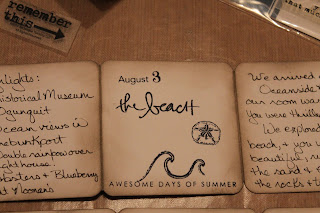 remember
this
that much
hlights:
istorical Museum
Ogunquit
ocean views in
nebunkport
Double rainbow over
lighthouse
lobsters & Blueberry
at Mooners
August 3
the beach
AWESOME DAYS OF SUMMER
We arrived
Oceanside
our room wa
You were thrille
We explored
beach, & you
beautiful,
the sand &
the rocks & t